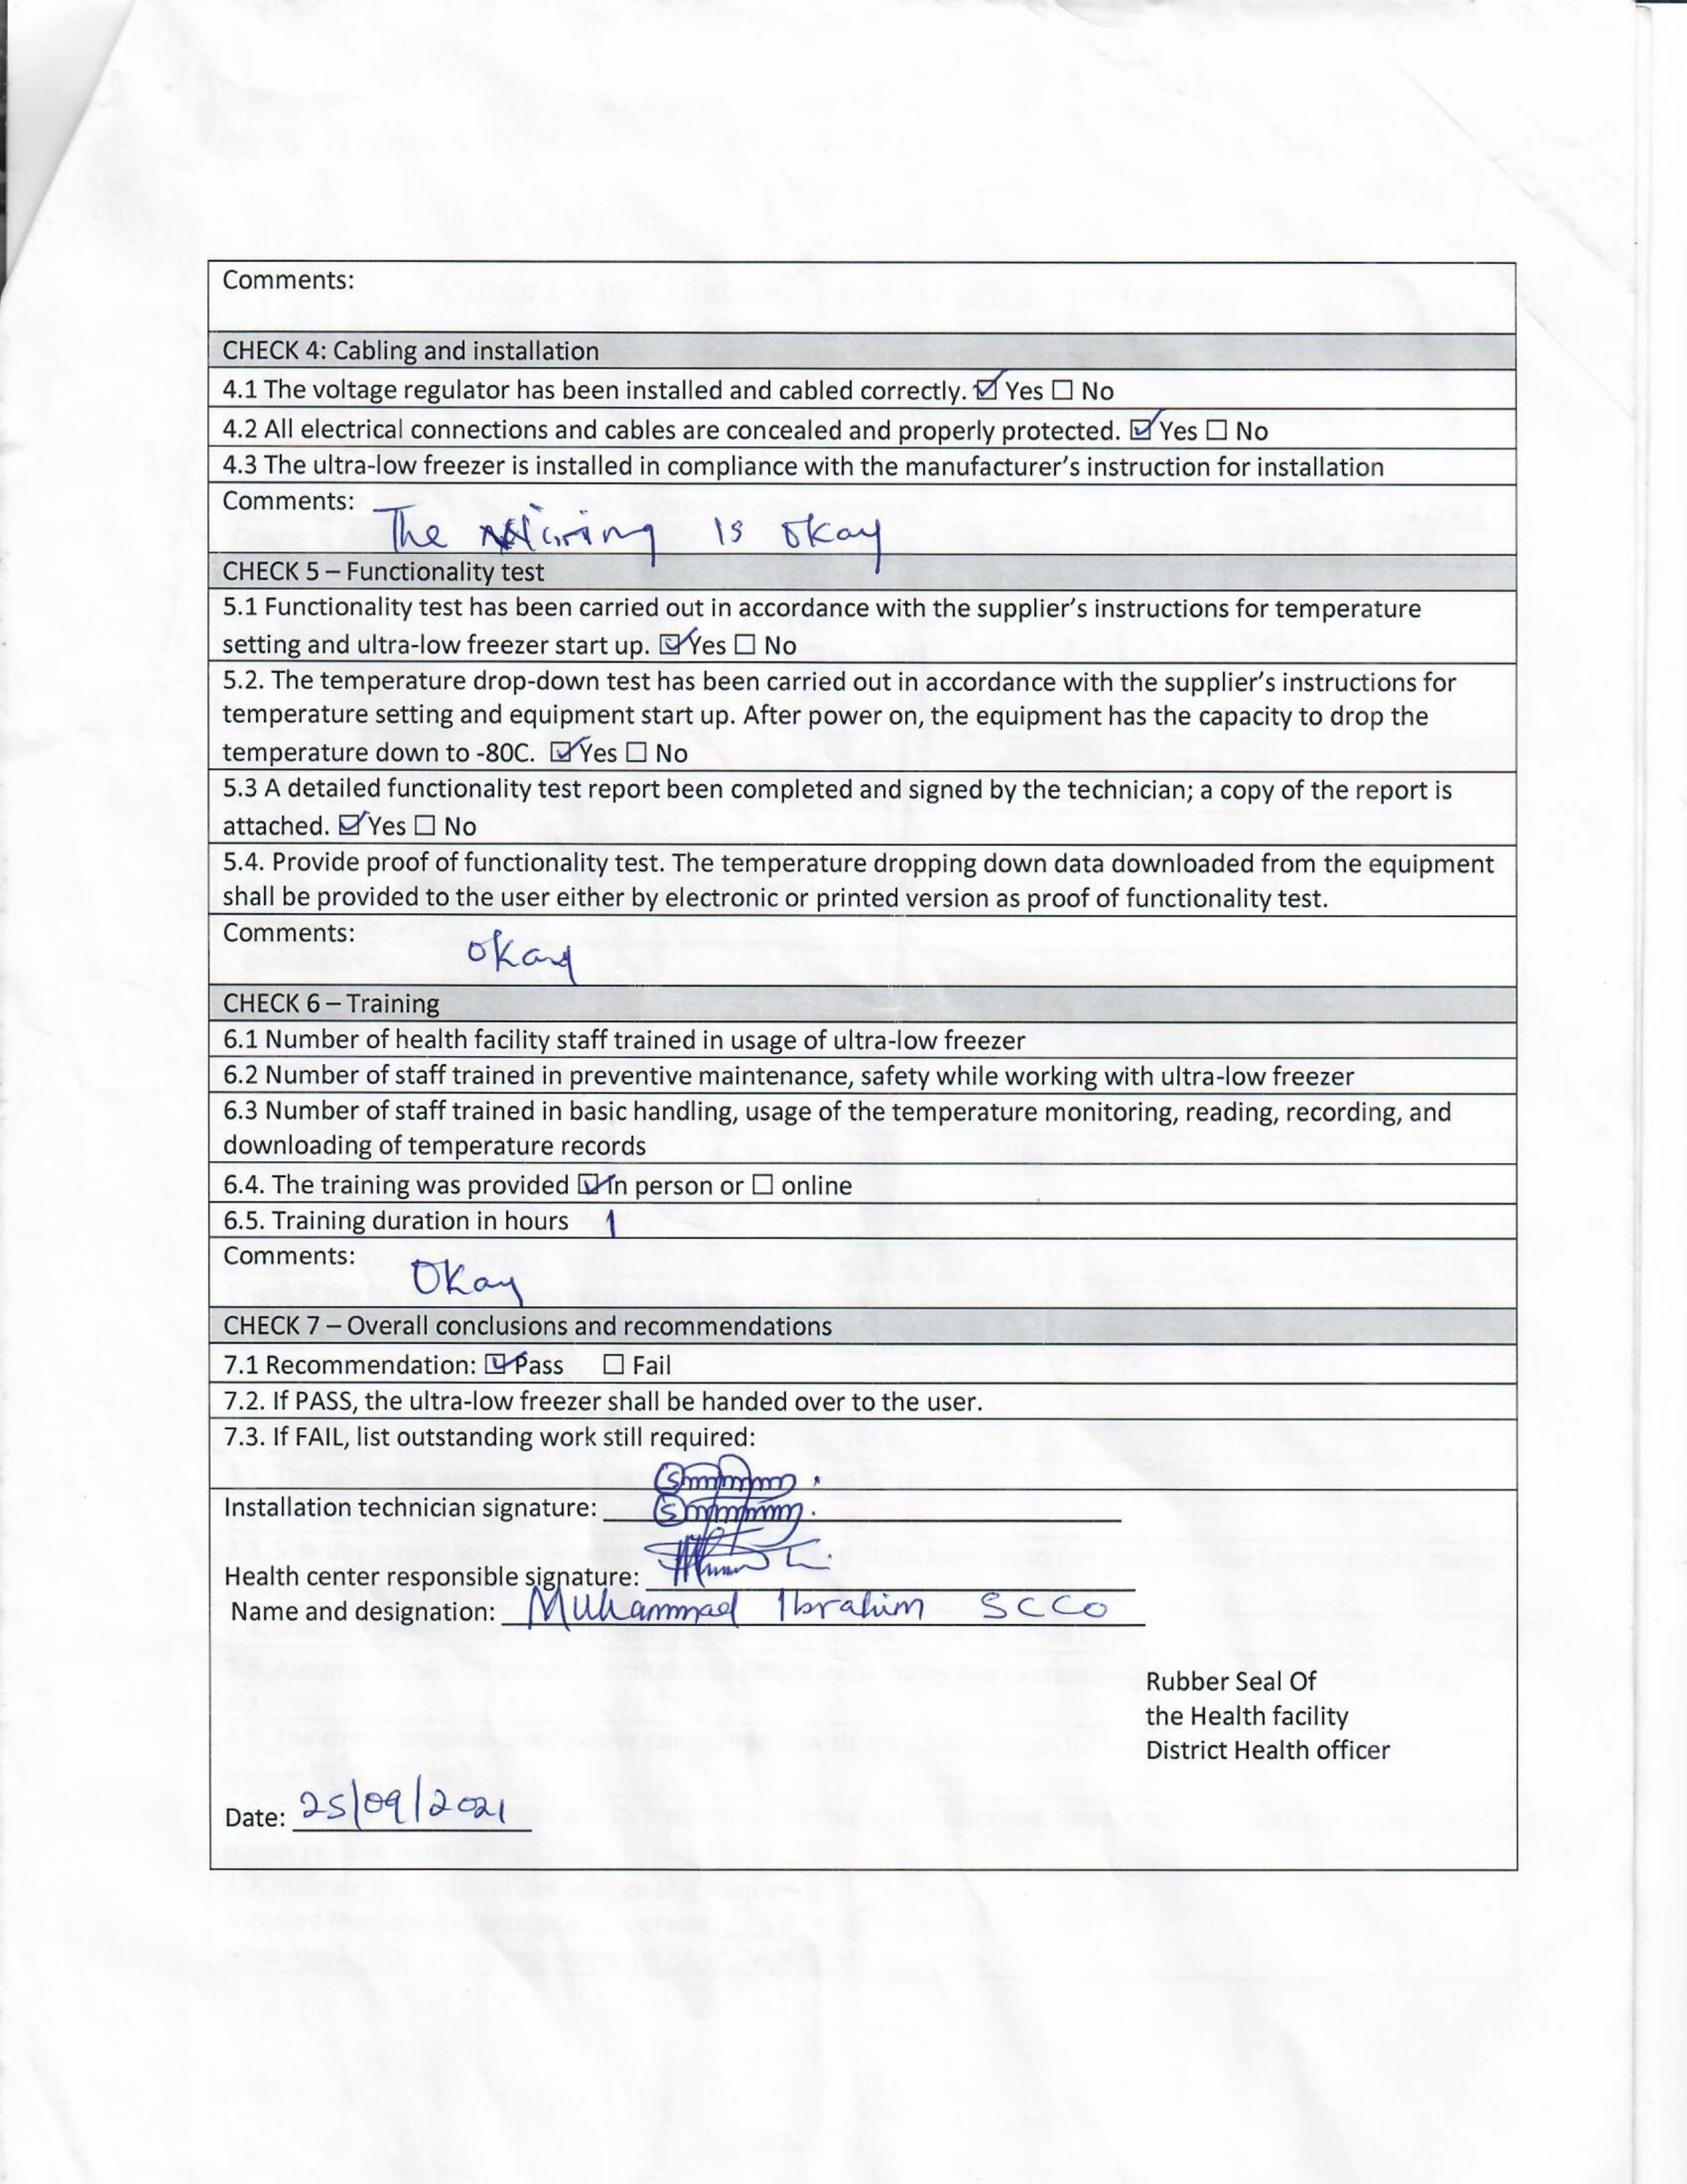 Comments:
CHECK 4: Cabling and installation
4.1 The voltage regulator has been installed and cabled correctly. ☑ Yes ☐ No
4.2 All electrical connections and cables are concealed and properly protected. ☑ Yes ☐ No
4.3 The ultra-low freezer is installed in compliance with the manufacturer's instruction for installation
Comments: The wiring is okay
CHECK 5 – Functionality test
5.1 Functionality test has been carried out in accordance with the supplier's instructions for temperature
setting and ultra-low freezer start up. ☑ Yes ☐ No
5.2. The temperature drop-down test has been carried out in accordance with the supplier's instructions for
temperature setting and equipment start up. After power on, the equipment has the capacity to drop the
temperature down to -80C. ☑ Yes ☐ No
5.3 A detailed functionality test report been completed and signed by the technician; a copy of the report is
attached. ☑ Yes ☐ No
5.4. Provide proof of functionality test. The temperature dropping down data downloaded from the equipment
shall be provided to the user either by electronic or printed version as proof of functionality test.
Comments: okay
CHECK 6 – Training
6.1 Number of health facility staff trained in usage of ultra-low freezer
6.2 Number of staff trained in preventive maintenance, safety while working with ultra-low freezer
6.3 Number of staff trained in basic handling, usage of the temperature monitoring, reading, recording, and
downloading of temperature records
6.4. The training was provided ☑ In person or ☐ online
6.5. Training duration in hours 1
Comments: Okay
CHECK 7 – Overall conclusions and recommendations
7.1 Recommendation: ☑ Pass ☐ Fail
7.2. If PASS, the ultra-low freezer shall be handed over to the user.
7.3. If FAIL, list outstanding work still required:
Installation technician signature:
Health center responsible signature:
Name and designation: Muhammad Ibrahim SCCO
Rubber Seal Of
the Health facility
District Health officer
Date: 25/09/2021